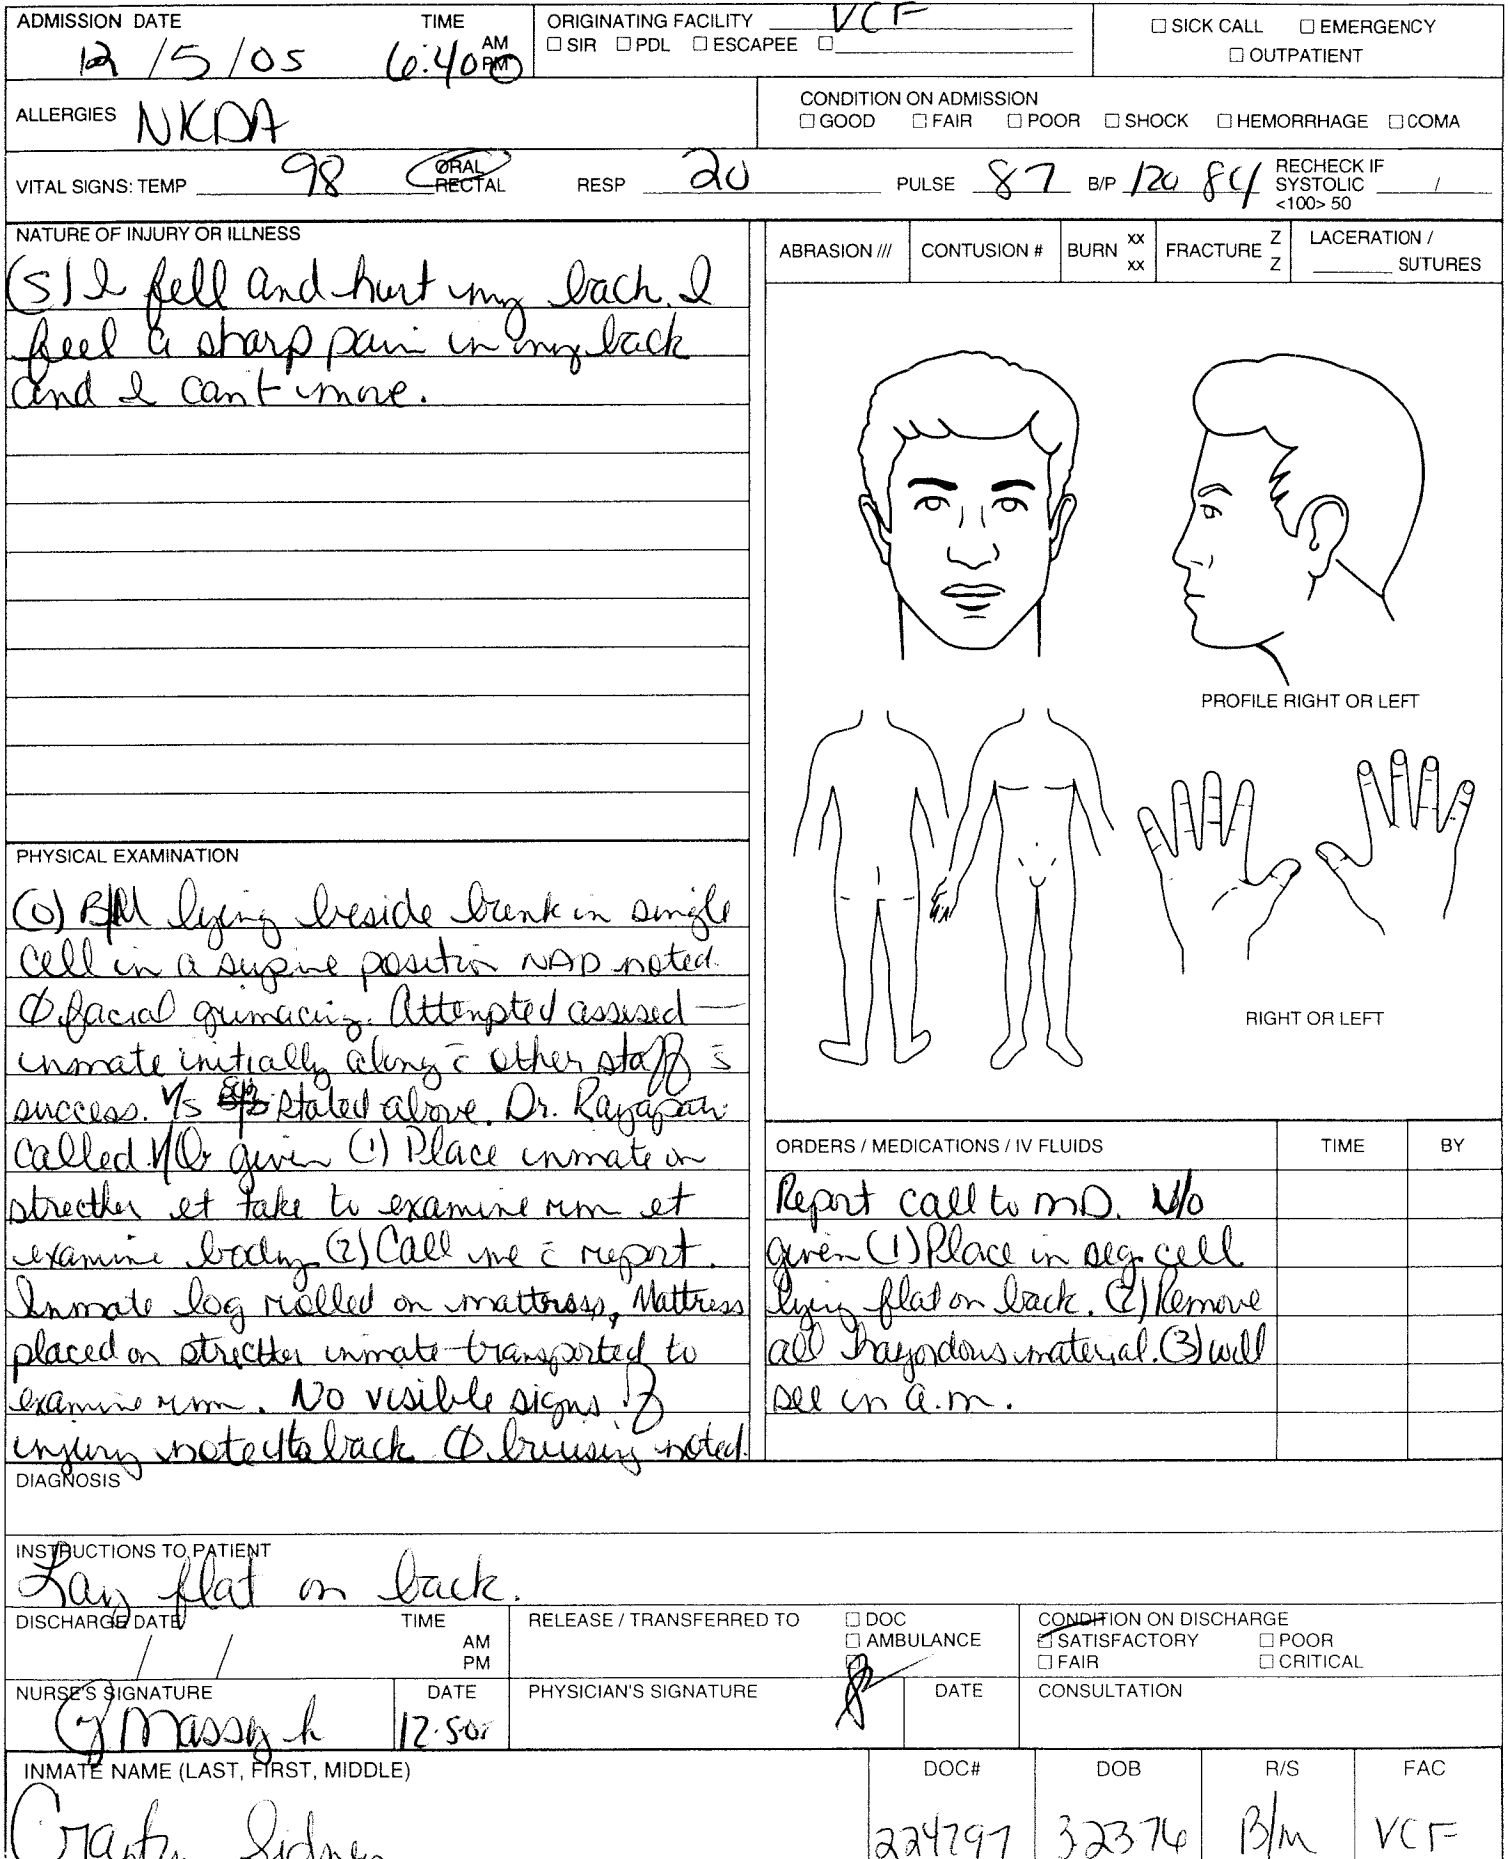 ADMISSION DATE TIME ORIGINATING FACILITY VCF ☐ SICK CALL ☐ EMERGENCY
12/5/05 6:40 AM PM ☐ SIR ☐ PDL ☐ ESCAPEE ☐ ☐ OUTPATIENT
ALLERGIES NKDA CONDITION ON ADMISSION
☐ GOOD ☐ FAIR ☐ POOR ☐ SHOCK ☐ HEMORRHAGE ☐ COMA
VITAL SIGNS: TEMP 98 ORAL RECTAL RESP 20 PULSE 87 B/P 120 84 RECHECK IF SYSTOLIC / <100> 50
NATURE OF INJURY OR ILLNESS
ABRASION /// CONTUSION # BURN xx xx FRACTURE Z Z LACERATION / SUTURES
(S) I fell and hurt my back. I
feel a sharp pain in my back
and I can't move.
PROFILE RIGHT OR LEFT
RIGHT OR LEFT
PHYSICAL EXAMINATION
(O) B/M lying beside bunk in single
cell in a supine position NAD noted.
Ø facial grimacing. Attempted assised —
inmate initially along c̄ other staff s̄
success. V/S stated above. Dr.
called V/O given (1) Place inmate on
strecther et take to examine rm et
examine body (2) Call me c̄ report.
Inmate log rolled on mattress, Mattress
placed on strecther inmate transported to
examine rm. No visible signs of
injury noted to back Ø bruising noted.
ORDERS / MEDICATIONS / IV FLUIDS TIME BY
Report call to MD. V/o
given (1) Place in seg. cell
lying flat on back. (2) Remove
all hazordous material. (3) will
see in a.m.
DIAGNOSIS
INSTRUCTIONS TO PATIENT
Lay flat on back.
DISCHARGE DATE TIME RELEASE / TRANSFERRED TO ☐ DOC CONDITION ON DISCHARGE
/ / AM ☐ AMBULANCE ☑ SATISFACTORY ☐ POOR
PM ☐ ☐ FAIR ☐ CRITICAL
NURSE'S SIGNATURE DATE PHYSICIAN'S SIGNATURE DATE CONSULTATION
Massey 12.5.05
INMATE NAME (LAST, FIRST, MIDDLE) DOC# DOB R/S FAC
Sidney 224797 32376 B/m VCF